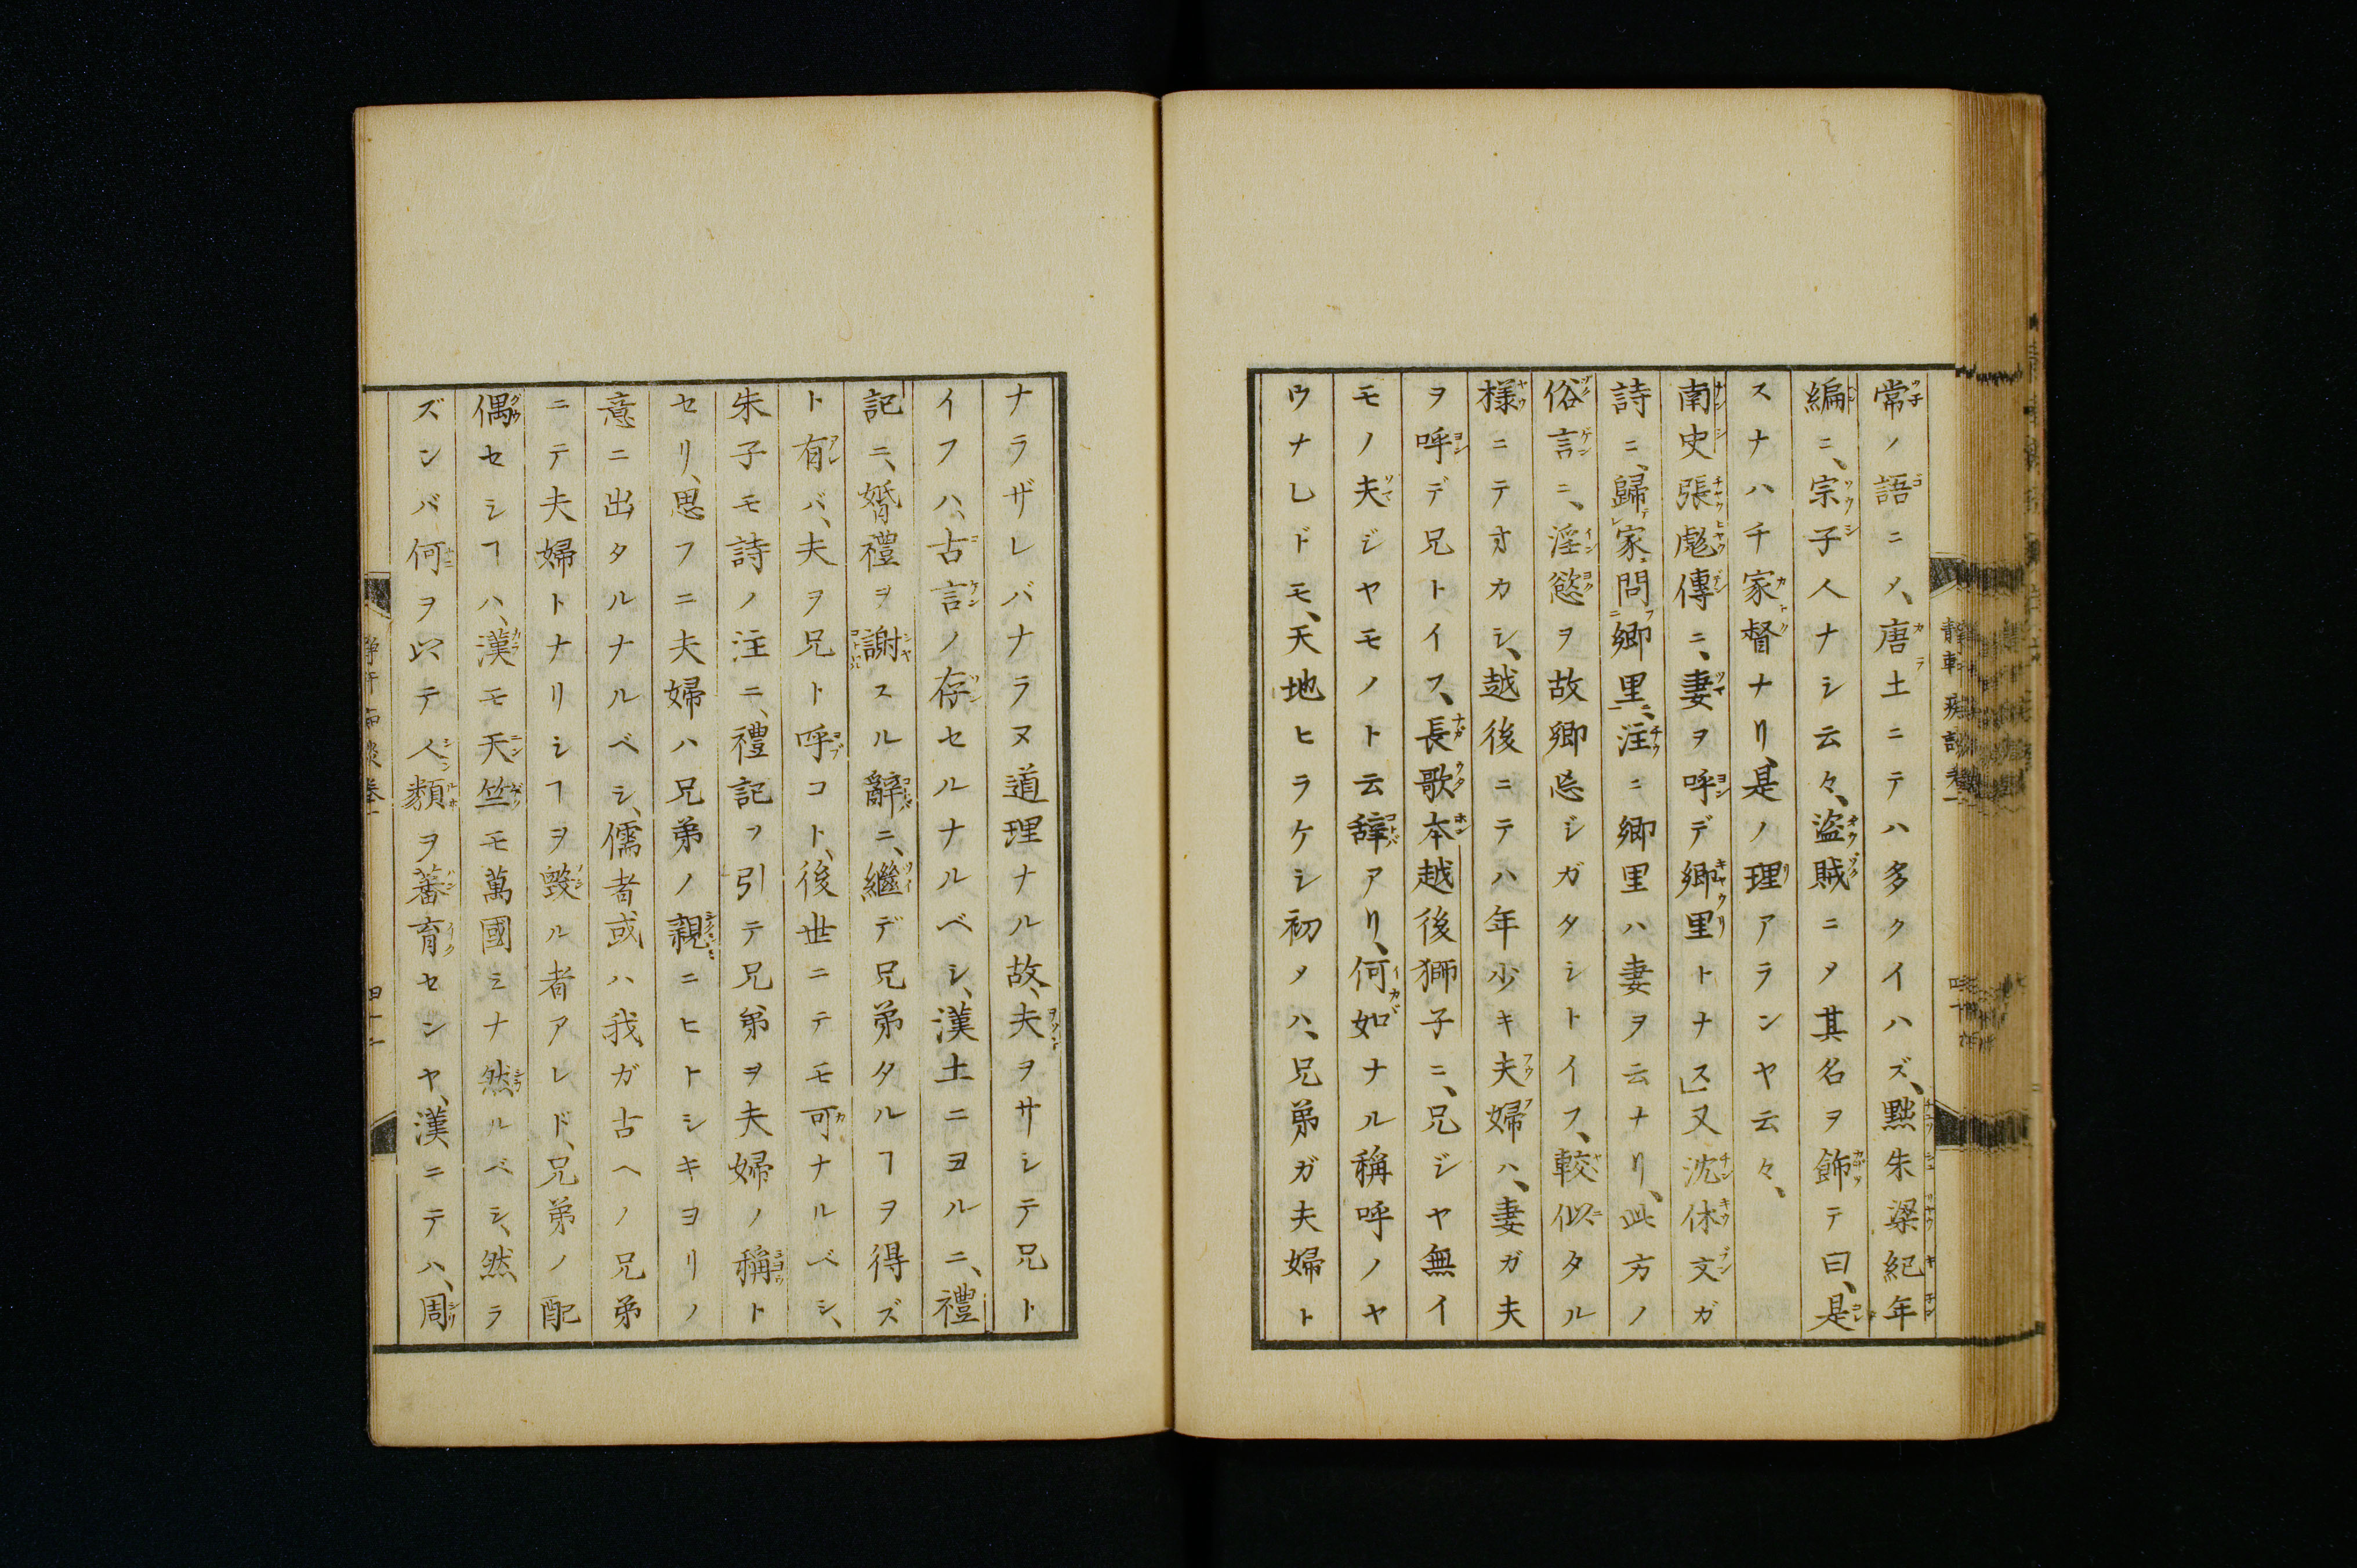 常ノ語ニ〆、唐土ニテハ多クイハズ、黜朱梁紀年
編ニ、宗子人ナシ云々、盗賊ニ〆其名ヲ飾テ曰、是
スナハチ家督ナリ、是ノ理アランヤ云々、
南史張彪傳ニ、妻ヲ呼デ郷里トナス」又沈休文ガ
詩ニ、歸家問郷里、注ニ郷里ハ妻ヲ云ナリ、此方ノ
俗言ニ、淫慾ヲ故郷忌ジガタシトイフ、較似タル
樣ニテオカシ、越後ニテハ年少キ夫婦ハ、妻ガ夫
ヲ呼デ兄トイフ、長歌本越後獅子ニ、兄ジヤ無イ
モノ夫ジヤモノト云辞アリ、何如ナル稱呼ノヤ
ウナレドモ、天地ヒラケシ初メハ、兄弟ガ夫婦ト
ナラザレバナラヌ道理ナル故、夫ヲサシテ兄ト
イフハ、古言ノ存セルナルベシ、漢土ニヨルニ、禮
記ニ、婚禮ヲ謝スル辭ニ、繼デ兄弟タルヿヲ得ズ
ト有バ、夫ヲ兄ト呼コト、後世ニテモ可ナルベシ、
朱子モ詩ノ注ニ、禮記ヲ引テ兄弟ヲ夫婦ノ稱ト
セリ、思フニ夫婦ハ兄弟ノ親ニヒトシキヨリノ
意ニ出タルナルベシ、儒者或ハ我ガ古ヘノ兄弟
ニテ夫婦トナリシヿヲ毀ル者アレド、兄弟ノ配
偶セシヿハ、漢モ天竺モ萬國ミナ然ルベシ、然ラ
ズンバ何ヲ以テ人類ヲ蕃育センヤ、漢ニテハ、周